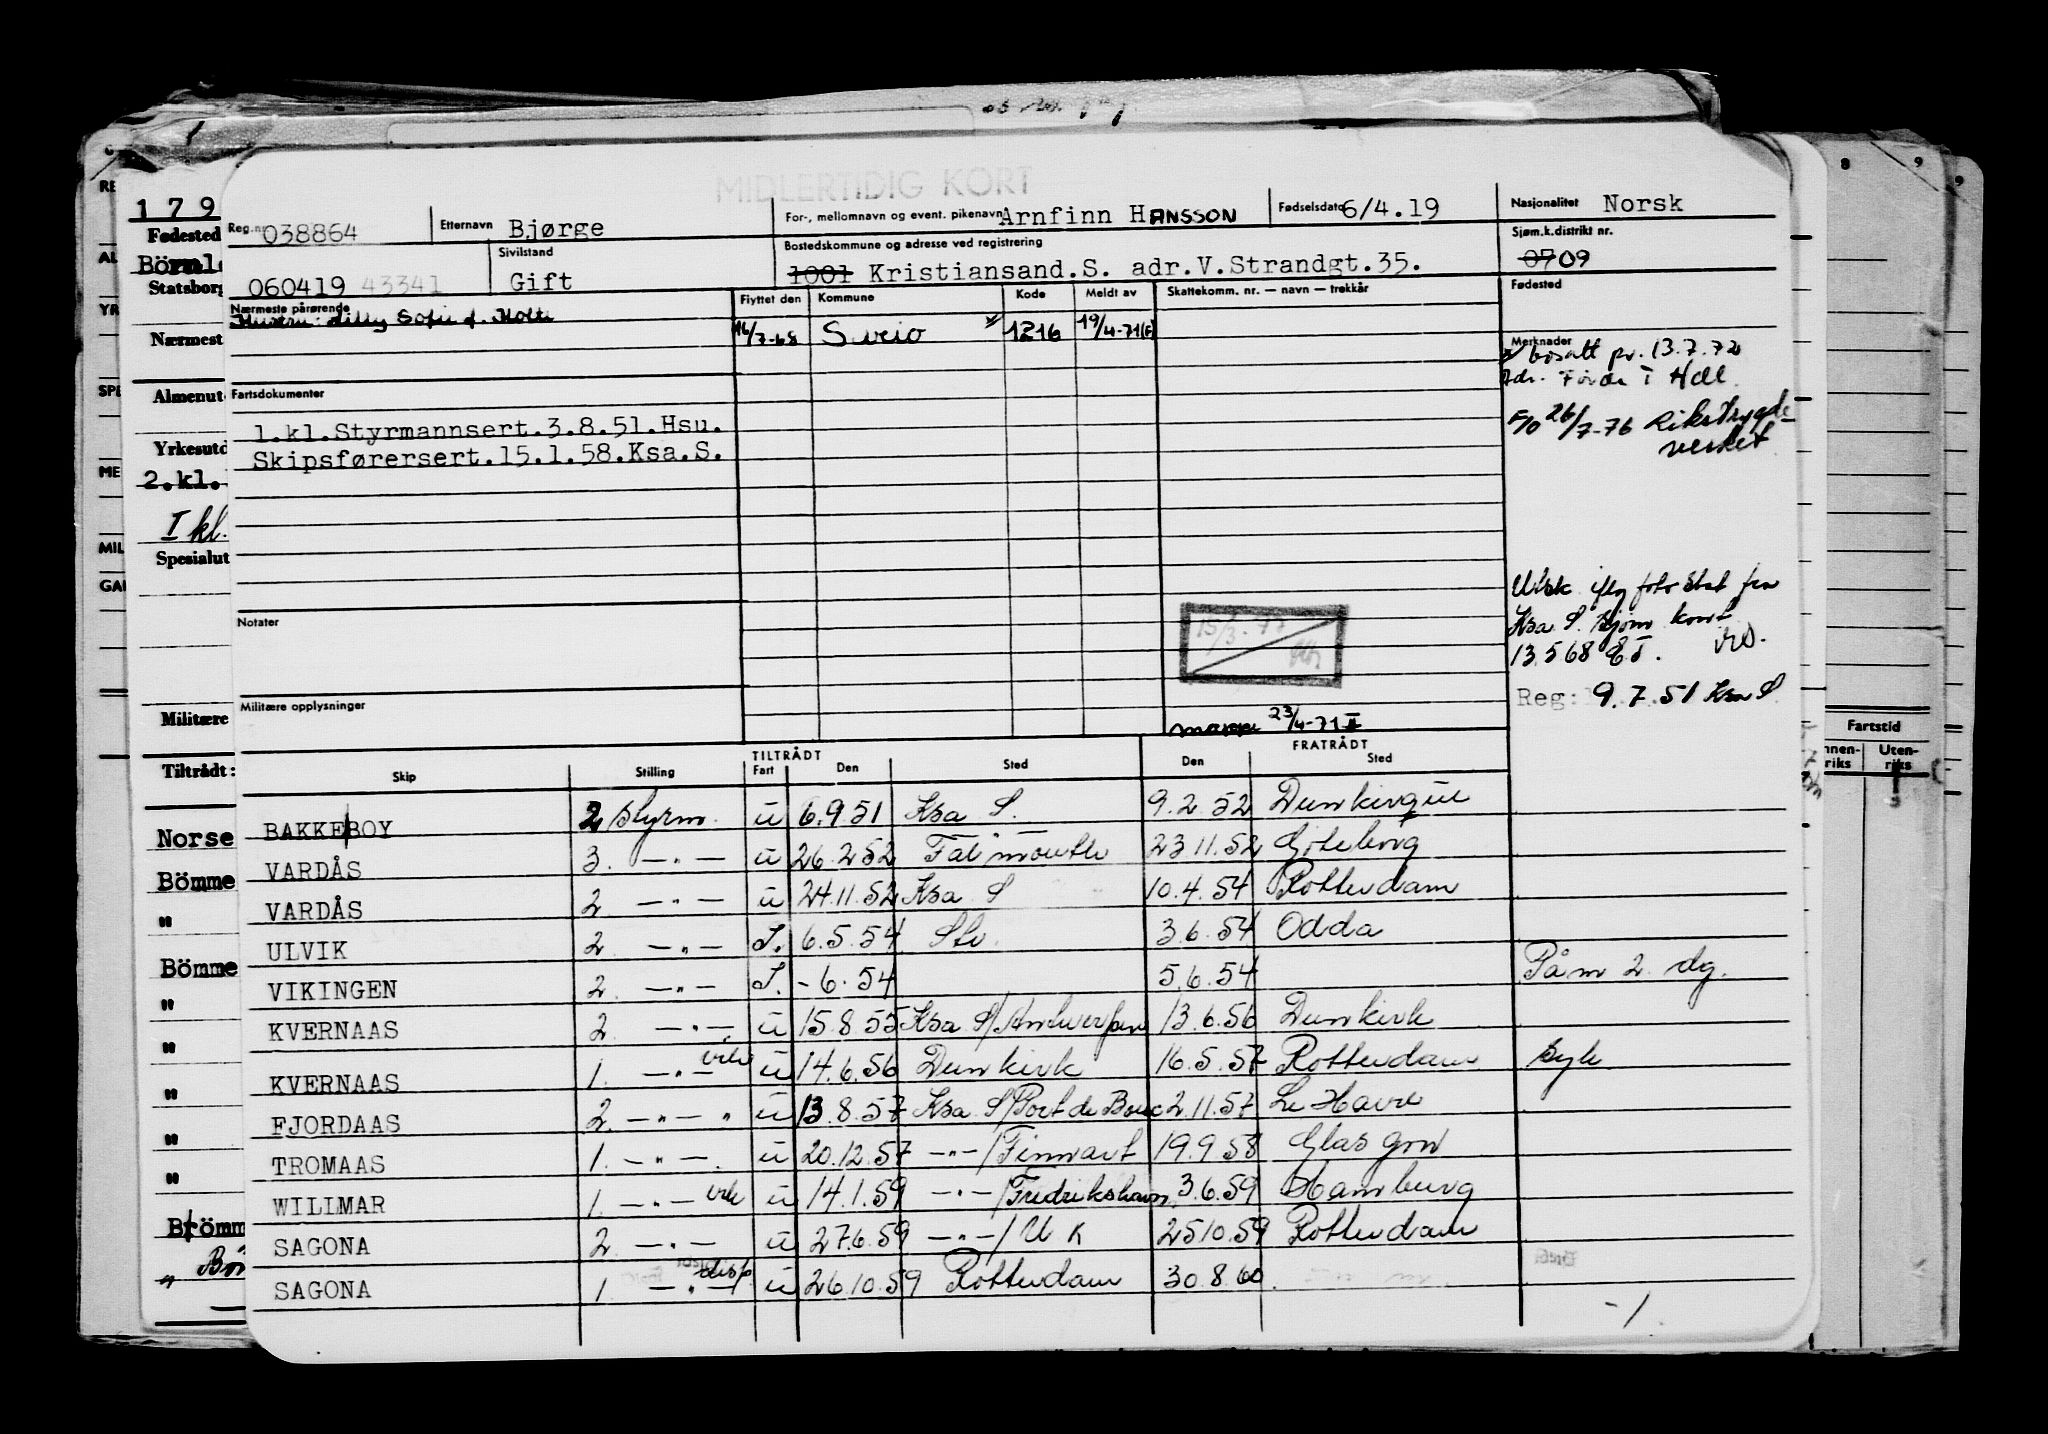 MIDLERTIDIG KORT
179
Reg.nr. 038864 Etternavn Bjørge For-, mellomnavn og event. pikenavn Arnfinn HANSSON Fødselsdato 6/4.19 Nasjonalitet Norsk
060419 43341 Sivilstand Gift Bostedskommune og adresse ved registrering 1001 Kristiansand.S. adr.V.Strandgt.35. Sjøm.k.distrikt nr. 07 09
Nærmeste pårørende Flyttet den Kommune Kode Meldt av Skattekomm. nr. — navn — trekkår Fødested
Sofie f.
16/7-68 Sveio x/ 1216 19/4-71(F)
Merknader
x/ bosatt pr. 13.7.72
Adr. Førde i Hdl.
F/O 26/7-76 Rikstrygde-
verket
Fartsdokumenter
1.kl.Styrmannsert.3.8.51.Hsu.
Skipsførersert.15.1.58.Ksa.S.
Notater
15/3-77
Utsk. iflg fotostat fra
Ksa S. sjøm. kont
13.5 68 E.T.
Reg: 9.7.51 Ksa S
Militære opplysninger
23/4-71
TILTRÅDT FRATRÅDT
Skip Stilling Fart Den Sted Den Sted
BAKKEBOY 2 styrm. u 6.9.51 Ksa S. 9.2.52 Dunkirque
VARDÅS 3. —"— u 26.2.52 Falmouth 23.11.52 Göteborg
VARDÅS 2 —"— u 24.11.52 Ksa S 10.4.54 Rotterdam
ULVIK 2 —"— I. 6.5.54 Stv. 3.6.54 Odda
VIKINGEN 2. —"— I. -6.54 5.6.54 Påm 2 dg.
KVERNAAS 2 —"— u 15.8.55 Ksa S/Antwerpen 13.6.56 Dunkirk
KVERNAAS 1. —"— u 14.6.56 Dunkirk 16.5.57 Rotterdam syk
FJORDAAS 2. —"— " u 13.8.57 Ksa S/Port de Bouc 2.11.57 Le Havre
TROMAAS 1. —"— u 20.12.57 —"—/Finnart 19.9.58 Glasgow
WILLMAR 1. —"— u 14.1.59 —"—/Fredrikshavn 3.6.59 Hamburg
SAGONA 2. —"— u 27.6.59 —"—/U K 25.10.59 Rotterdam
SAGONA 1. —"— disp. u 26.10.59 Rotterdam 30.8.60
-/
Fødested
Statsborg
Nærmest
Almenut
Yrkesutd
2.kl.
I kl.
Spesialut
Militære
Tiltrådt:
Norse
Bömme
"
Bömme
"
"
"
"
"
Brömm
" Bö
RE
AL
YR
SPE
ME
MIL
GA
8 9 9
Fartstid
Innen-
riks
Uten-
riks